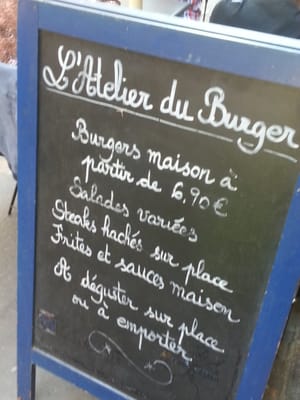 L'Atelier du Burger
Burgers maison à
partir de 6,90€
Salades variées
Steaks hachés sur place
Frites et sauces maison
A déguster sur place
ou à emporter